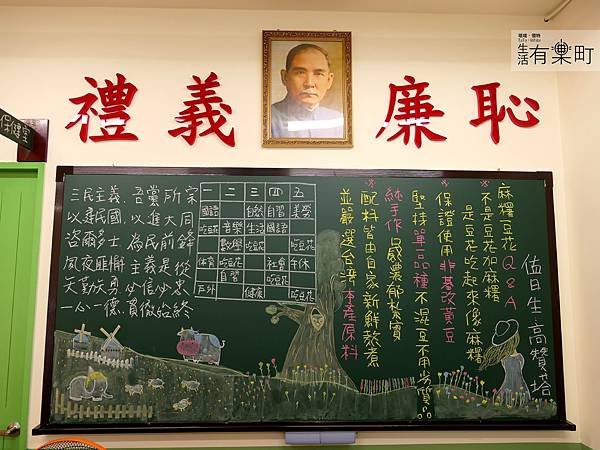 嘟嘟.蕾特
生活有樂町
禮 義 廉 恥
保健室
三民主義，吾黨所宗
以建民國，以進大同
咨爾多士，為民前鋒
夙夜匪懈，主義是從
矢勤矢勇，必信必忠
一心一德，貫徹始終
一 二 三 四 五
國語 自然 自習 美勞
吃豆花 音樂 生活 國語
數學 吃豆花 吃豆花
體育 吃豆花 社會 午休
自習 吃豆花
戶外 健康 吃豆花
麻糬豆花 Q&A
不是豆花加麻糬
是豆花吃起來像麻糬
保證使用非基改黃豆
堅持單品種不混豆不用劣質品
純手作 口感濃郁紮實
配料皆由自家新鮮熬煮
並嚴選台灣本產原料
值日生 高贊塔